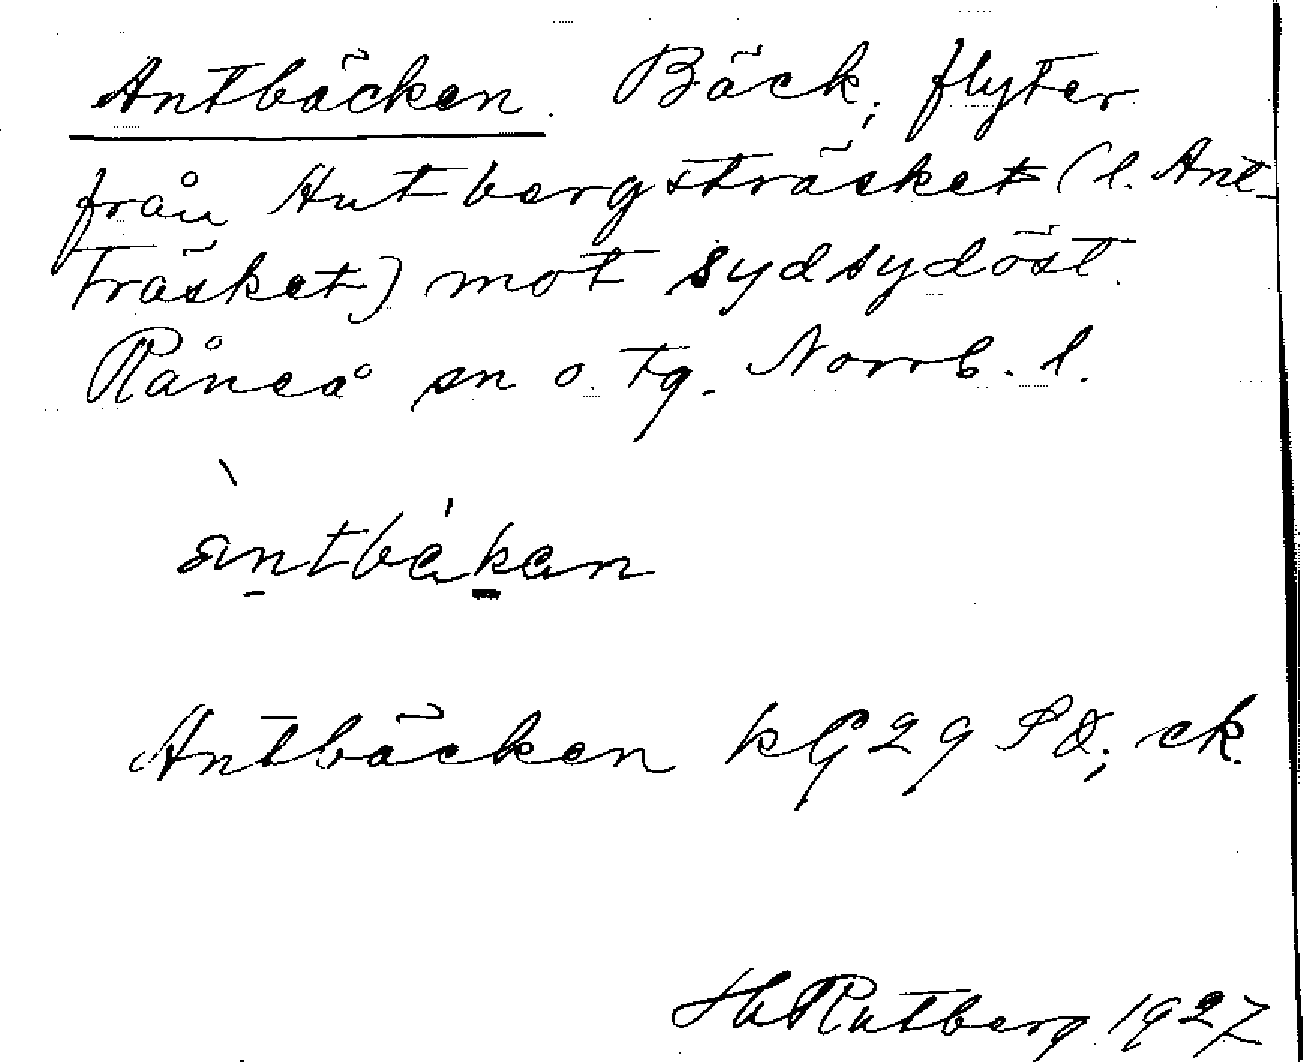 Antbäcken. Bäck; flyter
från Antbergsträsket (l. Ant-
träsket) mot sydsydöst.
Råneå sn o. tg. Norrb. l.
àntbäkan
Antbäcken kG29 SO; ek.
Hg Rutberg 1927